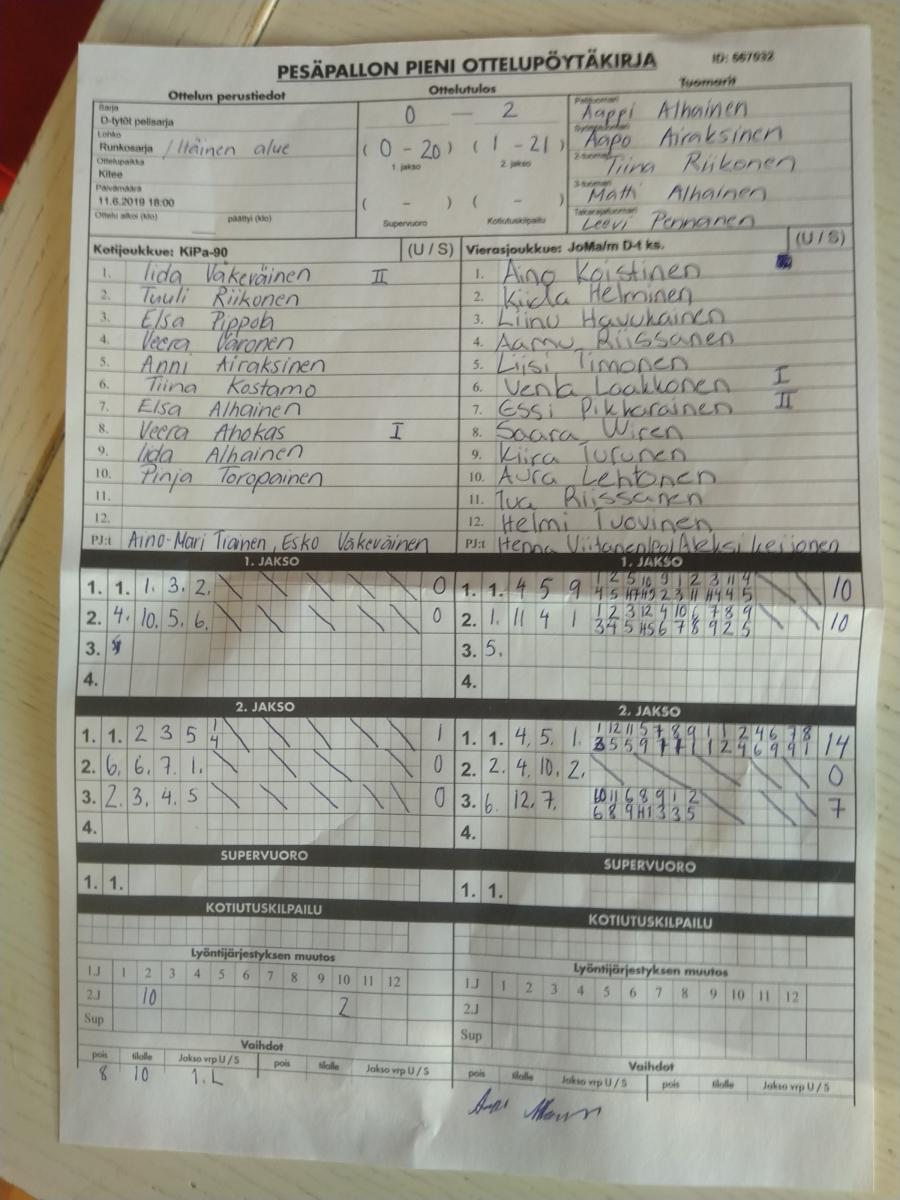 PESÄPALLON PIENI OTTELUPÖYTÄKIRJA
ID: 667032
Ottelun perustiedot
Sarja
D-tytöt pelisarja
Lohko
Runkosarja / Itäinen alue
Ottelupaikka
Kitee
Päivämäärä
11.6.2019 18:00
Ottelu alkoi (klo) päättyi (klo)
Ottelutulos
0 — 2
( 0 - 20 ) ( 1 - 21 )
1. jakso 2. jakso
( - ) ( - )
Supervuoro Kotiutuskilpailu
Tuomarit
Pelituomari
Aappi Alhainen
Syöttötuomari
Aapo Airaksinen
2-tuomari
Tiina Riikonen
3-tuomari
Matti Alhainen
Takarajatuomari
Leevi Pennanen
Kotijoukkue: KiPa-90 (U / S)
1. Iida Väkeväinen II
2. Tuuli Riikonen
3. Elsa Pippoh
4. Veera Varonen
5. Anni Airaksinen
6. Tiina Kostamo
7. Elsa Alhainen
8. Veera Ahokas I
9. Iida Alhainen
10. Pinja Toropainen
11.
12.
PJ:t Aino-Mari Tiainen, Esko Väkeväinen
Vierasjoukkue: JoMa/m D-t ks. (U / S)
1. Aino Koistinen
2. Kiida Helminen
3. Liinu Havukainen
4. Aamu Riissanen
5. Liisi Timonen
6. Venla Laakkonen I
7. Essi Pikkarainen II
8. Saara Wiren
9. Kiira Turunen
10. Aura Lehtonen
11. Tua Riissanen
12. Helmi Tuovinen
PJ:t Henna Viitanen Aleksi Keijonen
1. JAKSO
1. 1. 1. 3. 2. 0
2. 4. 10. 5. 6. 0
3.
4.
1. JAKSO
1. 1. 4 5 9 10
2. 1. 11 4 1 10
3. 5.
4.
2. JAKSO
1. 1. 2 3 5 1
4
2. 6. 6. 7. 1. 0
3. 2. 3. 4. 5 0
4.
2. JAKSO
1. 1. 4. 5. 1. 14
2. 2. 4. 10. 2. 0
3. 6. 12. 7. 7
4.
SUPERVUORO
1. 1.
SUPERVUORO
1. 1.
KOTIUTUSKILPAILU
KOTIUTUSKILPAILU
Lyöntijärjestyksen muutos
1.J 1 2 3 4 5 6 7 8 9 10 11 12
2.J 10 2
Sup
Vaihdot
pois tilalle Jakso vrp U / S pois tilalle Jakso vrp U / S
8 10 1. L
Lyöntijärjestyksen muutos
1.J 1 2 3 4 5 6 7 8 9 10 11 12
2.J
Sup
Vaihdot
pois tilalle Jakso vrp U / S pois tilalle Jakso vrp U / S